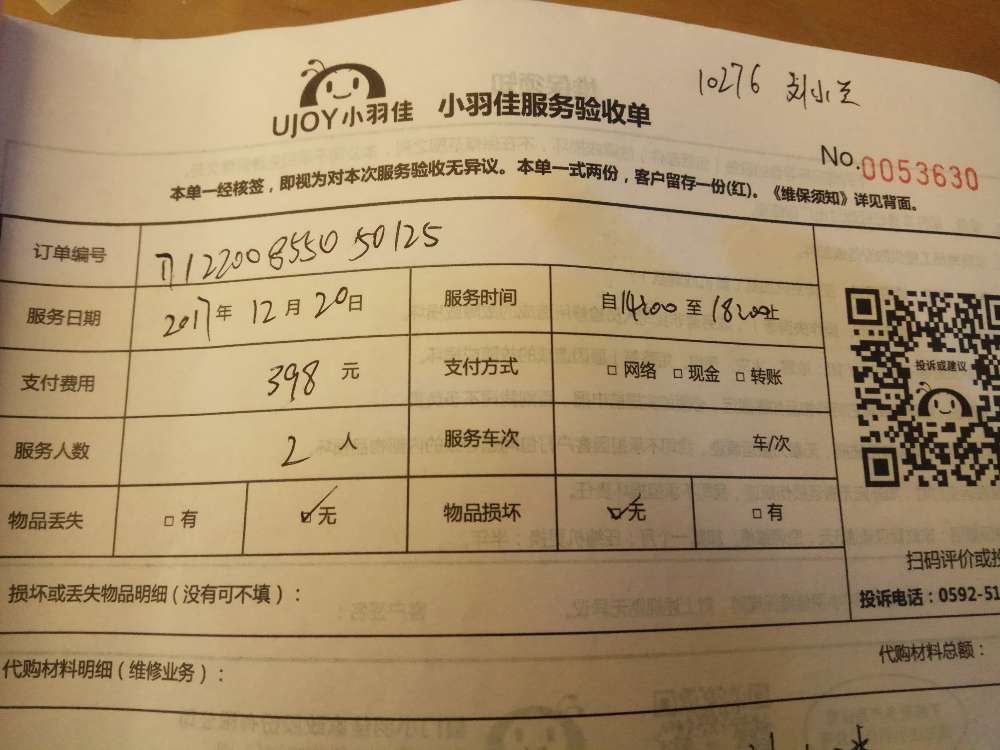 10276 刘小兰
UJOY小羽佳 小羽佳服务验收单
No.0053630
本单一经核签，即视为对本次服务验收无异议。本单一式两份，客户留存一份(红)。《维保须知》详见背面。
订单编号 1712200855050125
服务日期 2017年12月20日 服务时间 自14:00至18:00止
支付费用 398元 支付方式 □网络 □现金 □转账
投诉或建议
服务人数 2人 服务车次 车/次
物品丢失 □有 ☑无 物品损坏 ☑无 □有
扫码评价或投
损坏或丢失物品明细（没有可不填）：
投诉电话：0592-51
代购材料明细（维修业务）： 代购材料总额：